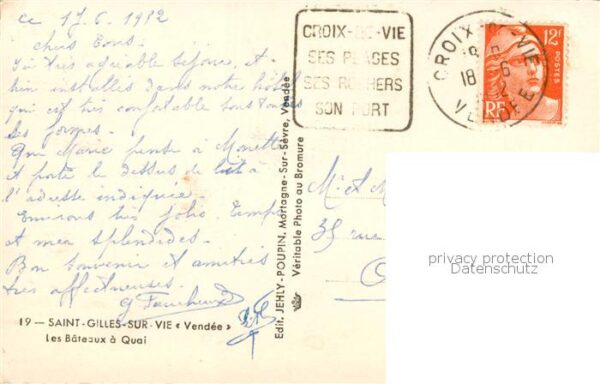 ce 17.6.1952
chers tous.
très agréable séjour, et
bien installés dans notre hôtel
qui est très confortable sous toutes
les formes.
Que Marie pense à Monette
et porte le dessus de lit à
l'adresse indiquée.
Environs très jolis. Temps
et mer splendides.
Bon souvenir et amitiés
très affectueuses.
19 — SAINT-GILLES-SUR-VIE « Vendée »
Les Bâteaux à Quai
Edit. JEHLY-POUPIN, Mortagne-Sur-Sèvre, Vendée
Véritable Photo au Bromure
CROIX-DE-VIE
SES PLAGES
SES ROCHERS
SON PORT
CROIX-DE-VIE
18 -6
VENDEE
12F
POSTES
RF
M. et M
35 rue
privacy protection
Datenschutz